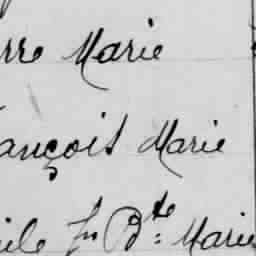 rre Marie
ançois Marie
ile Jn Bte: Marie